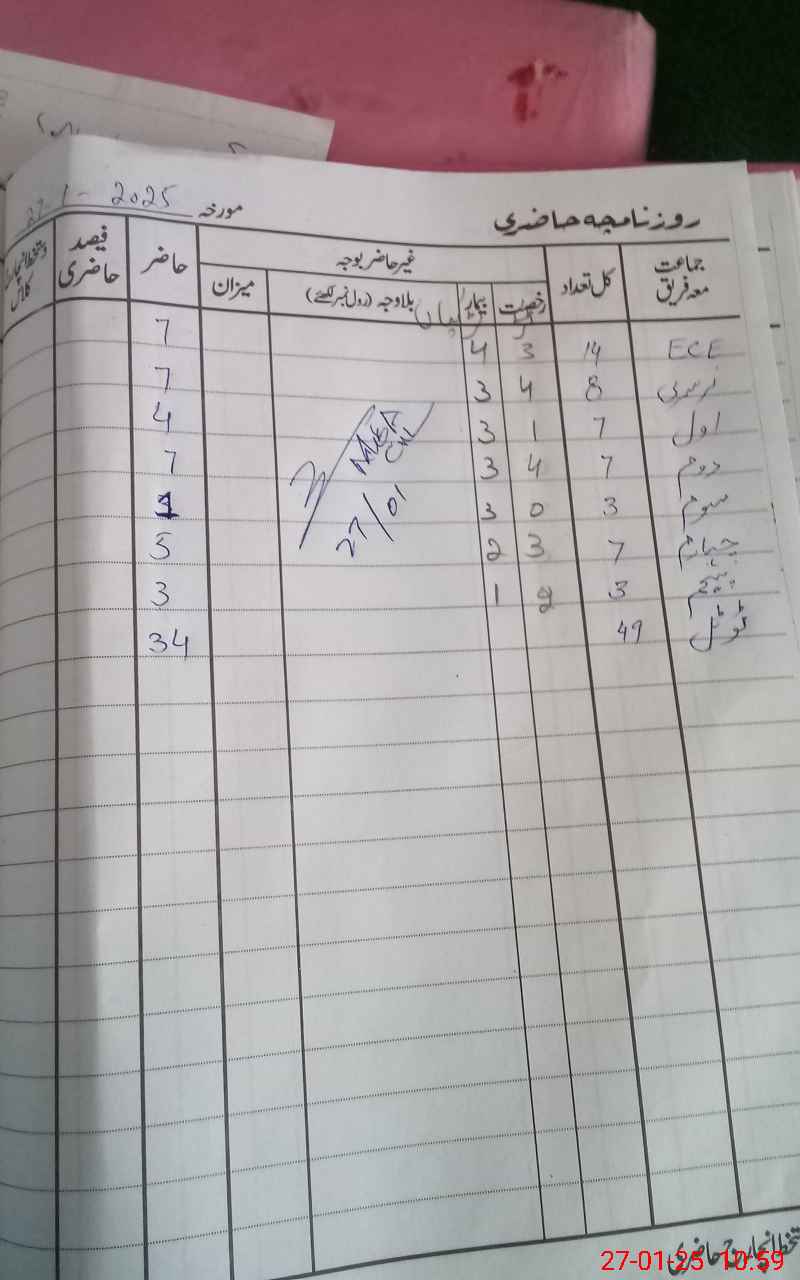 روزنامچہ حاضری
مورخہ 27-1-2025
جماعت معہ فریق کل تعداد غیر حاضر بوجہ حاضر فیصد حاضری دستخط انچارج کلاس
رخصت بیمار بلاوجہ (رول نمبر لکھئے) میزان
ECE 14 3 4 7
نرسری 8 4 3 7
اول 7 1 3 4
دوم 7 4 3 7
سوم 3 0 3 1
چہارم 7 3 2 5
پنجم 3 2 1 3
ٹوٹل 49 34
27/01
دستخط انچارج حاضری
27-01-25 10:59